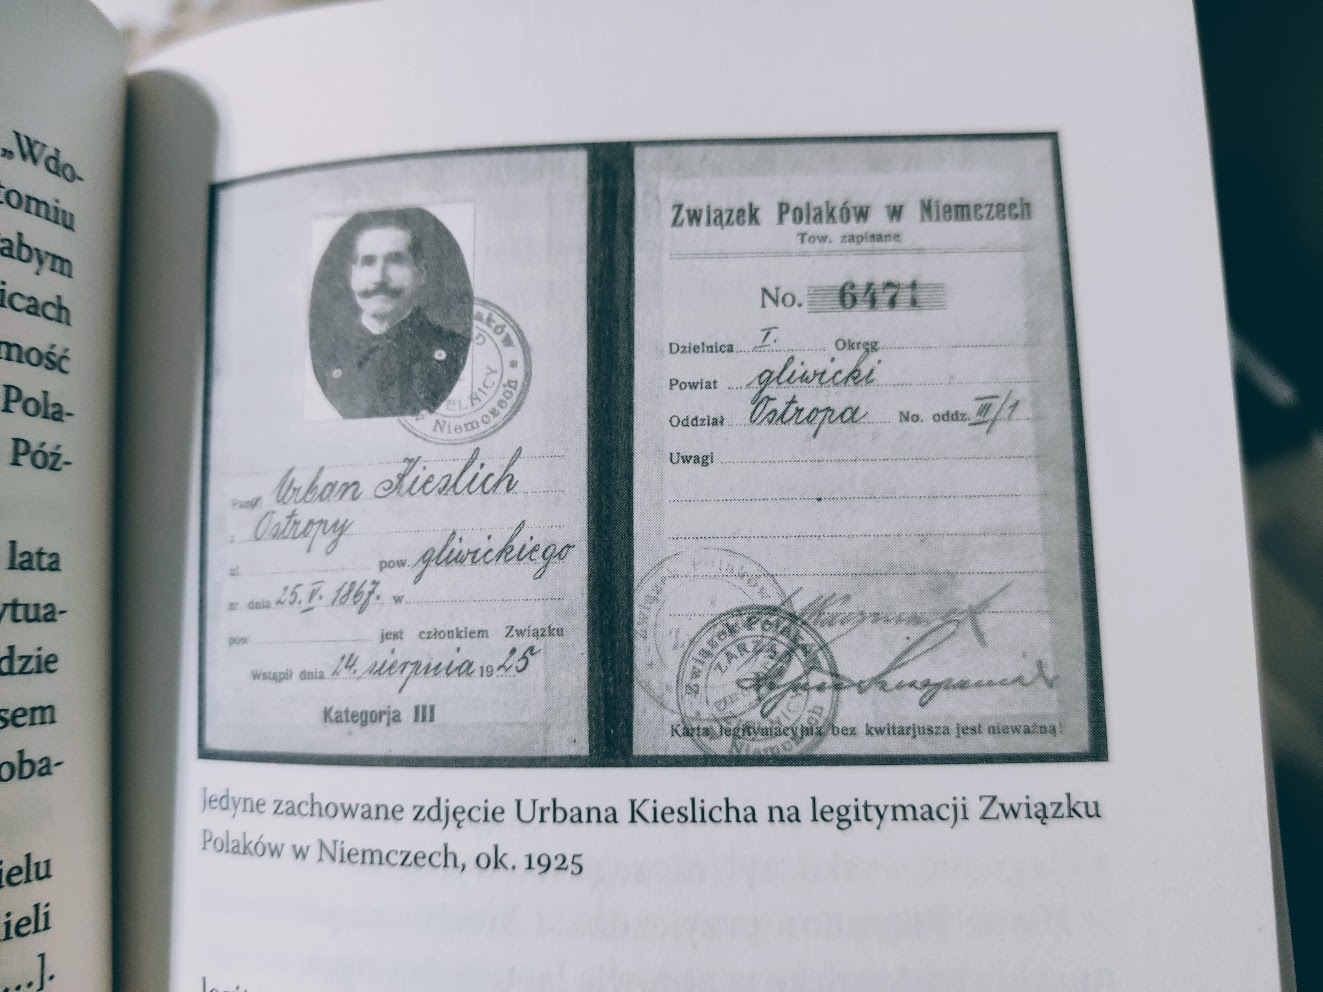 „Wdo-
tomiu
abym
icach
mość
Pola-
Póź-
lata
ytua-
dzie
sem
oba-
ielu
ieli
...].
Polaków
DZIELNICY
Niemczech
Urban Kieslich
Ostropy
pow. gliwickiego
ur. dnia 25. V. 1867. w
pow. jest członkiem Związku
Wstąpił dnia 24. sierpnia 1925
Kategorja III
Związek Polaków w Niemczech
Tow. zapisane
No. 6471
Dzielnica I. Okręg
Powiat gliwicki
Oddział Ostropa No. oddz. III/1
Uwagi
Związek Polaków w
Związek Polaków
ZARZ
Niemczech
Karta legitymacyjna bez kwitarjusza jest nieważną!
Jedyne zachowane zdjęcie Urbana Kieslicha na legitymacji Związku
Polaków w Niemczech, ok. 1925